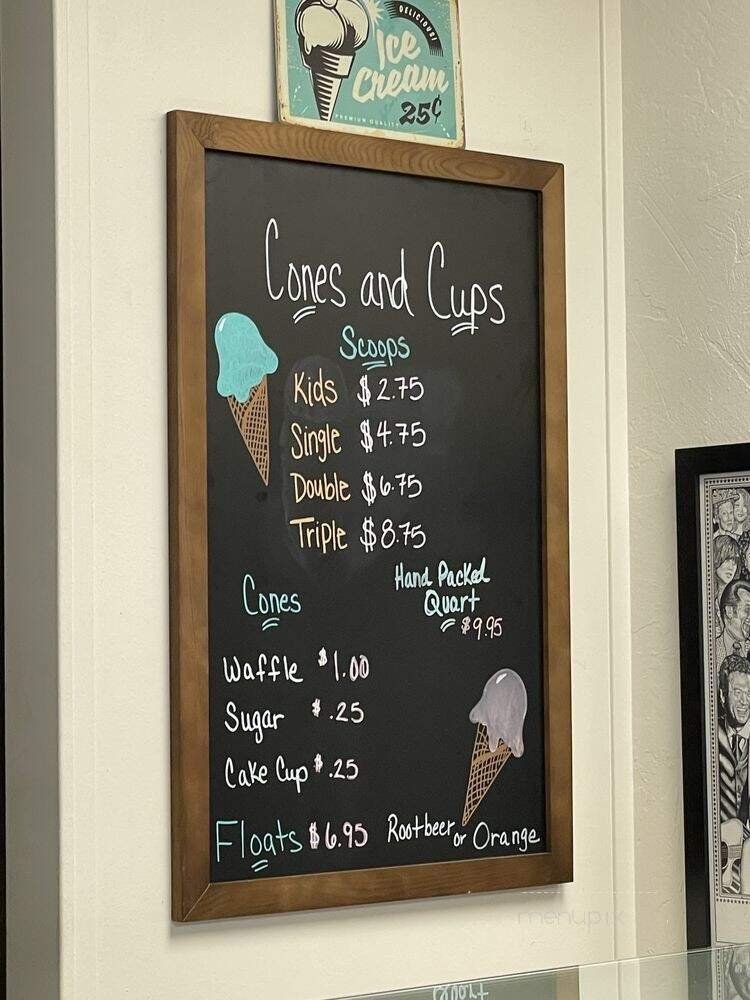 DELICIOUS!
Ice
Cream
PREMIUM QUALITY
25¢
Cones and Cups
Scoops
Kids $2.75
Single $4.75
Double $6.75
Triple $8.75
Hand Packed
Quart
$9.95
Cones
Waffle $1.00
Sugar $.25
Cake Cup $.25
Floats $6.95 Rootbeer or Orange
menupix